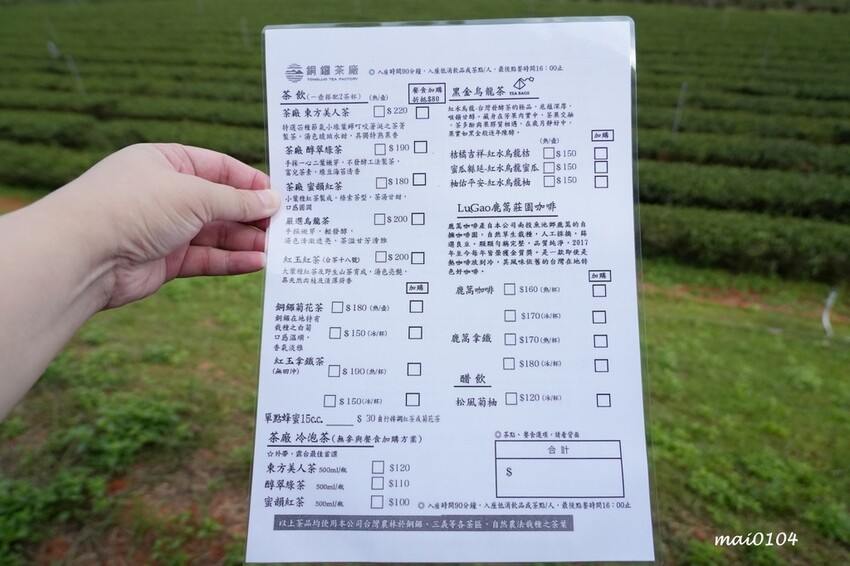 銅鑼茶廠
TONGLUO TEA FACTORY
◎入座時間90分鐘,入座低消飲品或茶點/人,最後點餐時間16:00止
茶飲(一壺搭配2茶杯) (熱/壺)
餐食加購
折抵$80
茶廠 東方美人茶 $220
特選芯種節氣小綠葉蟬叮咬著涎之茶菁
製茶。湯色琥珀水甜,具獨特熟果香
茶廠 醇翠綠茶 $190
手採一心二葉嫩芽,不發酵工法製茶,
富兒茶素,綠豆海苔清香
茶廠 蜜韻紅茶 $180
小葉種紅茶製成,條索茶型,茶湯甘甜,
口感圓潤
嚴選烏龍茶 $200
手採嫩芽,輕發酵,
湯色清澈透亮,茶滋甘芳清雅
紅玉紅茶(台茶十八號) $200
大葉種紅茶及野生山茶育成,湯色亮艷,
具天然肉桂及淡薄荷香
加購
銅鑼菊花茶 $180 (熱/壺)
銅鑼在地特有
栽種之白菊
口感溫順,
香氣淡雅
$150 (冰/杯)
紅玉拿鐵茶
(無咖啡)
$190 (熱/杯)
$150 (冰/杯)
單點蜂蜜15c.c. $ 30 自行搭調紅茶或菊花茶
茶廠 冷泡茶(無參與餐食加購方案)
☆外帶、露台最佳首選
東方美人茶 500ml/瓶 $120
醇翠綠茶 500ml/瓶 $110
蜜韻紅茶 500ml/瓶 $100
黑金烏龍茶
TEA BAGS
紅水烏龍-台灣發酵茶的極品,底蘊深厚,
喉韻甘醇。藏身在芳果肉實中,茶果交融
,茶多酚與果膠質相遇,在歲月靜好中,
果實如黑金般逐年陳酵。
(熱/壺)
加購
桔橘吉祥-紅水烏龍桔 $150
蜜瓜綿延-紅水烏龍蜜瓜 $150
柚佑平安-紅水烏龍柚 $150
LuGao鹿篙莊園咖啡
鹿篙咖啡產自本公司南投魚池鄉鹿篙的自
擁咖啡園,自然草生栽種,人工採摘,篩
選良豆,顆顆勻稱完整,品質純淨,2017
年至今每年皆榮獲金質獎,是一款即使是
熱咖啡放到冷,其風味依舊的台灣在地特
色好咖啡。
加購
鹿篙咖啡 $160 (熱/杯)
$170 (冰/杯)
鹿篙拿鐵 $170 (熱/杯)
$180 (冰/杯)
醋飲
松風菊柚 $120 (冰/杯)
◎茶點、餐食選項,請看背面
合計
$
◎入座時間90分鐘,入座低消飲品或茶點/人,最後點餐時間16:00止
以上茶品均使用本公司台灣農林於銅鑼、三義等各茶區,自然農法栽種之茶葉
mai0104